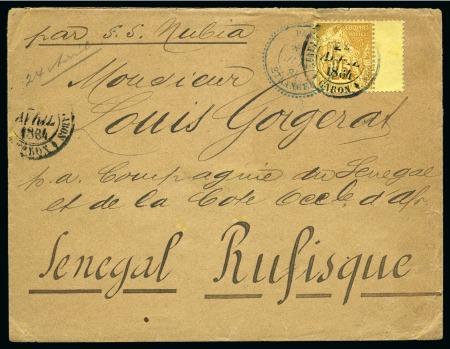 par S.S. Nubia
24 Avril
Monsieur
Louis Gorgerat
AVRIL
1884
GABON
AVRIL
1884
GABON
p.a. Compagnie du Senegal
et de la Cote Occle d'afr
Senegal Rufisque